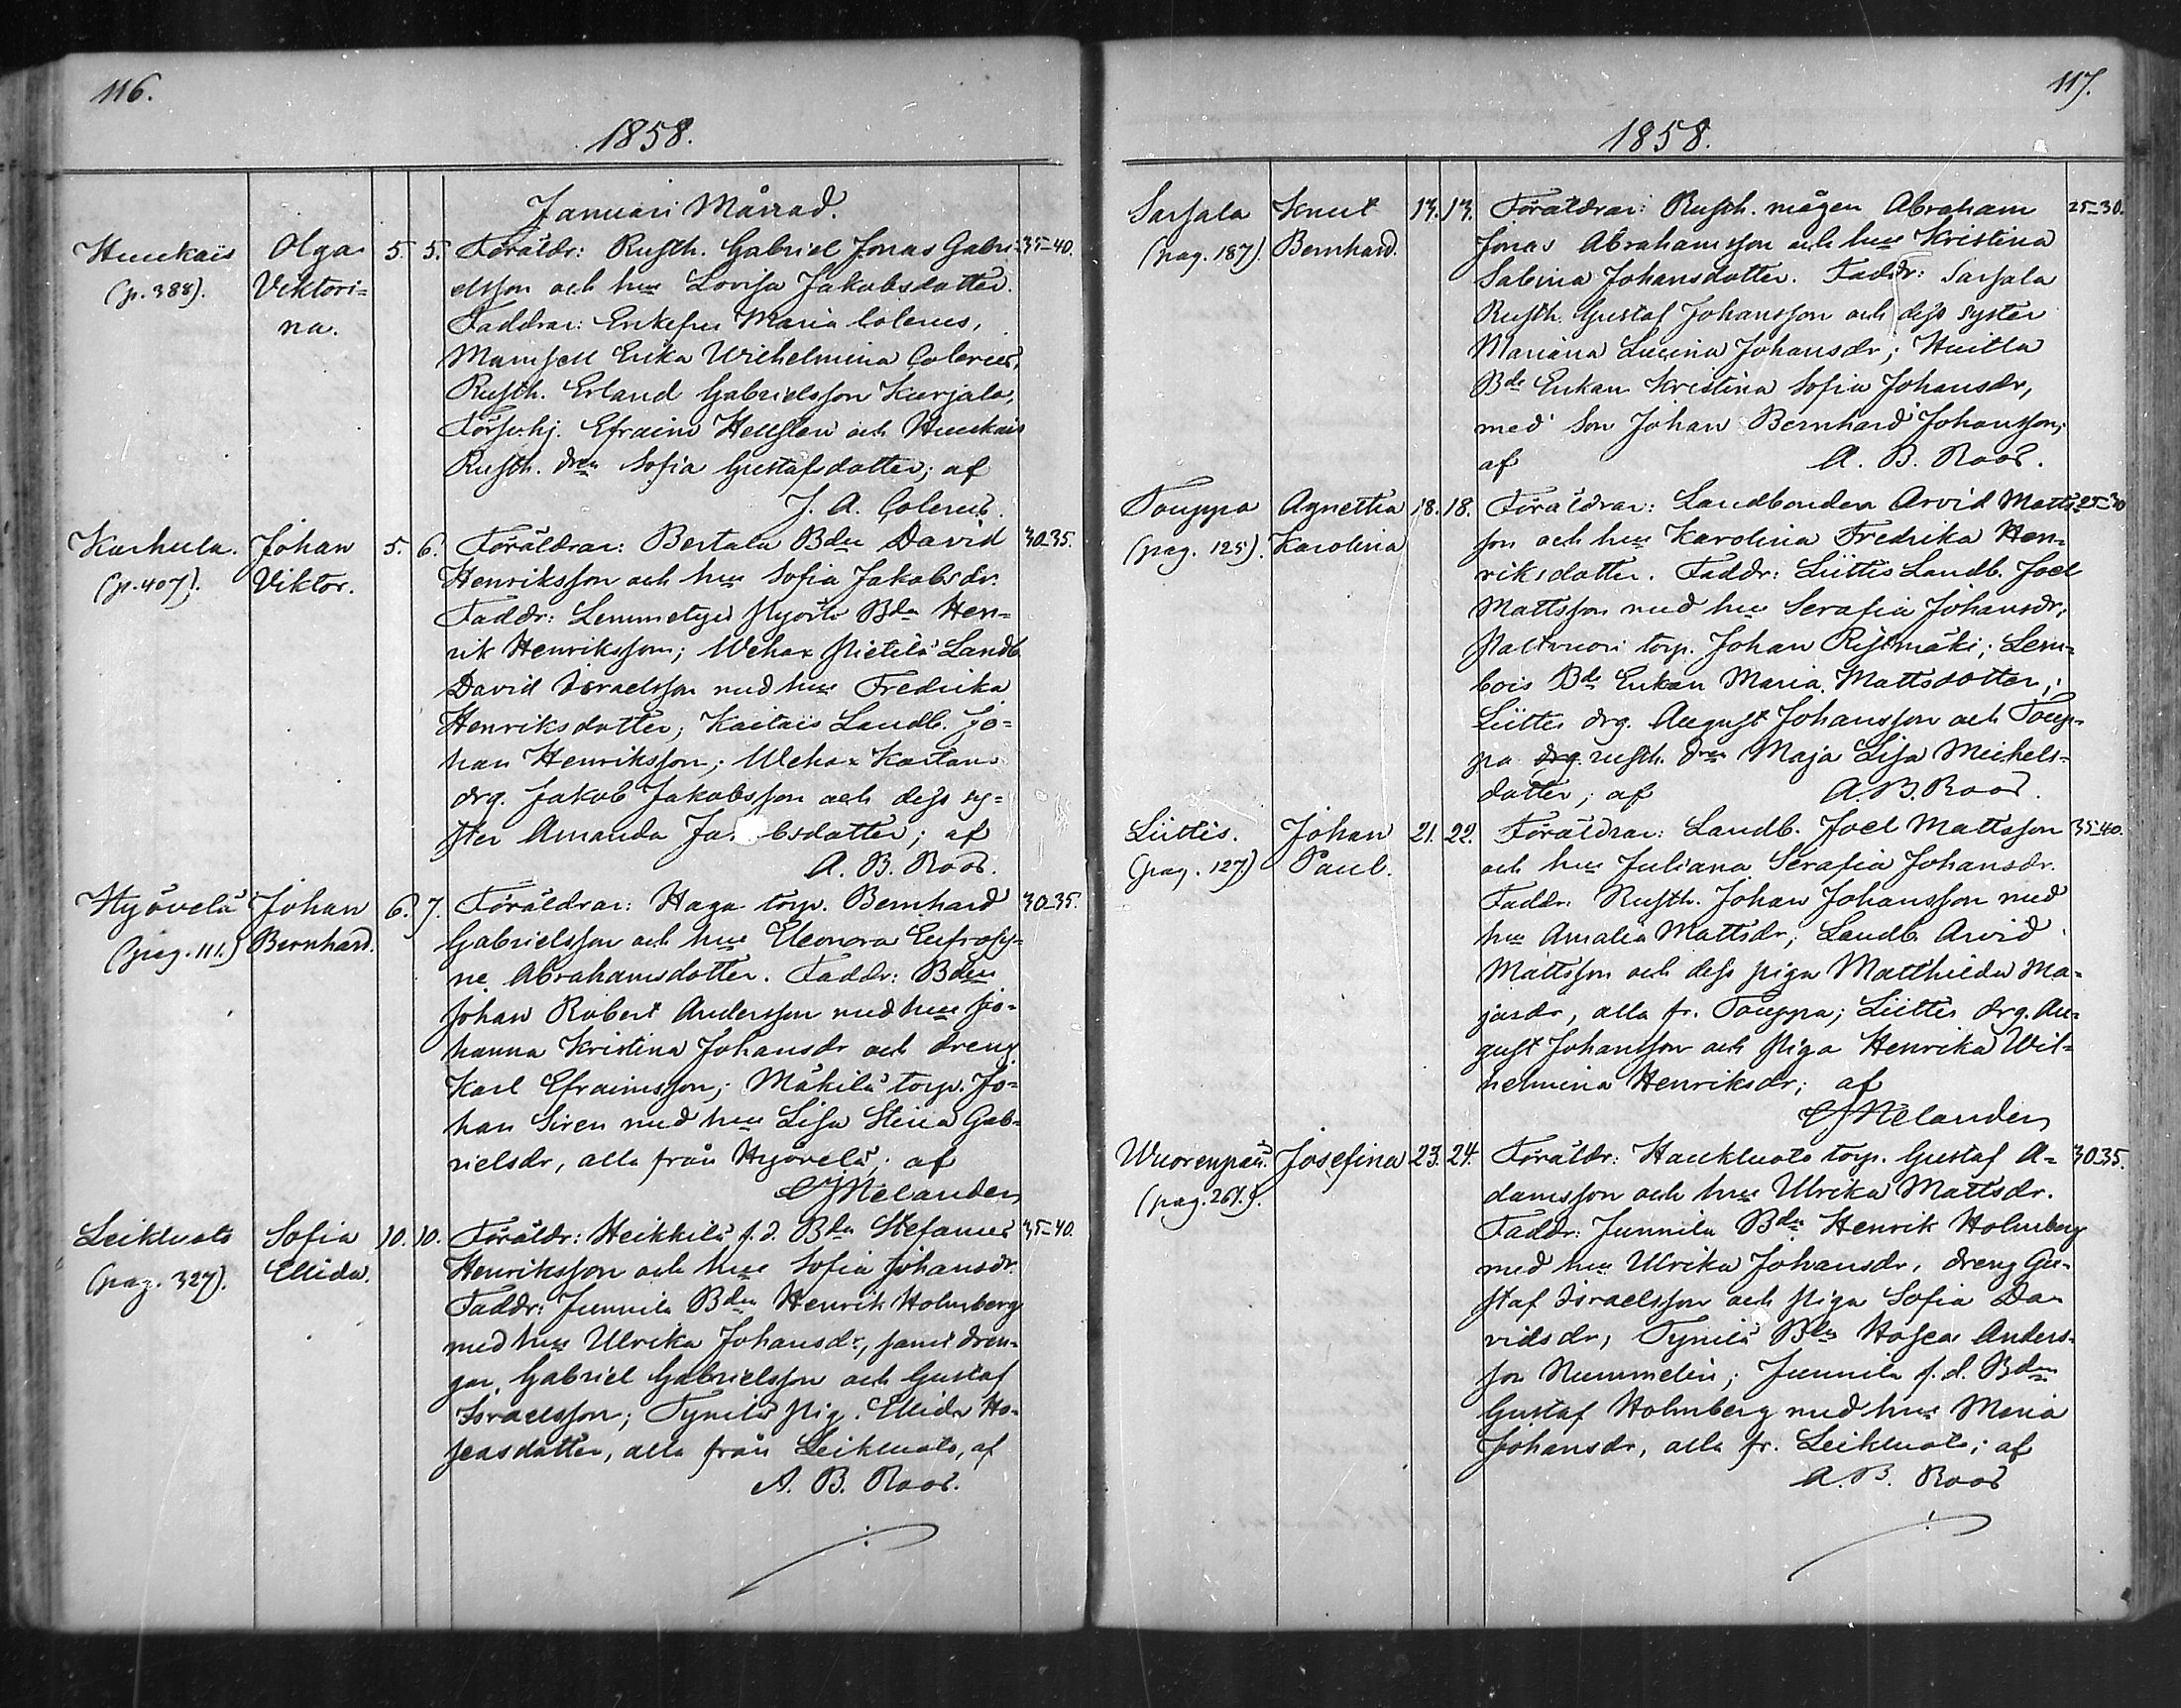 116.
1858.
Januari Månad.
Huukais Olga 5. 5. Föräldr: Rusth. Gabriel Jonas Gabri- 35-40.
(p. 388). Viktori= elsson och hus Lovisa Jakobsdotter.
na. Faddrar: Enkefru Maria Colerus,
Mamsell Erika Wilhelmina Colerus,
Rusth. Erland Gabrielsson Karjala,
Förserhj. Efraim Hellsten och Huukais
Rusth. drn Sofia Gustafsdotter; af
J. A. Colerus.
Karhula. Johan 5. 6. Föräldrar: Bertala Bdn David 30-35.
(p. 407). Viktor. Henriksson och hus Sofia Jakobsdr.
Faddr: Lemmetyis Pyörli Bdn Hen=
rik Henriksson; Wehax Pietilä Landb
David Israelsson med hus Fredrika
Henriksdotter; Kaitais Landb. Jo=
han Henriksson; Wehax Kartan
drg. Jakob Jakobsson och dess sy=
ster Amanda Ja bsdotter; af
A. B. Roos.
Hyövelä Johan 6. 7. Föräldrar: Haga torp. Bernhard 30-35.
(pag. 111.) Bernhard. Gabrielsson och hus Eleonora Eufrosy=
ne Abrahamsdotter. Faddr: Bdn
Johan Robert Andersson med hus Jo=
hanna Kristina Johansdr och dreng
Karl Efraimsson; Mäkilä torp. Jo=
han Siren med hus Lisa Stina Gab=
rielsdr, alla från Hyövelä; af
CJMelander
Leikluoto Sofia 10. 10. Föräldr: Heikkilä f.d. Bdn Stefanus 35-40.
(pag. 327). Ellida. Henriksson och hus Sofia Johansdr.
Faddr: Junnila Bdn Henrik Holmberg
med hus Ulrika Johansdr, samt dren=
gar, Gabriel Gabrielsson och Gustaf
Israelsson; Tynilä pig. Ellida Ho=
seasdotter, alla från Leikluoto, af
A. B. Roos.
117.
1858.
Sarsala Knut 17. 17. Föräldrar: Rusth. mågen Abraham 25-30.
(pag. 187). Bernhard. Jonas Abrahamsson och hus Kristina
Sabina Johansdotter. Faddr: Sarsala
Rusth. Gustaf Johansson och dess syster
Mariana Lucina Johansdr; Huitla
Bde Enkan Kristina Sofia Johansdr,
med Son Johan Bernhard Johansson;
af A. B. Roos.
Touppa Agnettia 18. 18. Föräldrar: Landbonden Arvid Matts- 25-30
(pag. 125). Karolina son och hus Karolina Fredrika Hen=
riksdotter. Faddr: Liittis Landb. Joel
Mattsson med hus Serafia Johansdr;
Paltvuori torp. Johan Ristimäki; Lem=
bois Bde Enkan Maria Mattsdotter;
Liittis drg. August Johansson och Toup=
pa drg. rusth. drn Maja Lisa Michels=
dotter; af A. B. Roos.
Liittis. Johan 21. 22. Föräldrar: Landb. Joel Mattsson 35-40.
(pag. 127.) Paul. och hus Juliana Serafia Johansdr.
Faddr. Rusth. Johan Johansson med
hus Amalia Mattsdr; Landb. Arvid
Mattsson och dess piga Matthilda Ma=
jasdr, alla fr. Touppa; Liittis drg. Au=
gust Johansson och Piga Henrika Wil=
helmina Henriksdr; af
CJMelander
Wuorenpää. Josefina 23. 24. Föräldr: Haukluoto torp. Gustaf A= 30-35.
(pag. 261.). damsson och hus Ulrika Mattsdr.
Faddr. Junnila Bdn Henrik Holmberg
med hus Ulrika Johansdr, dreng Gu=
staf Israelsson och Piga Sofia Da=
vidsdr, Tynilä Bdn Hosea Anders=
son Nummelin; Junnila f.d. Bdn
Gustaf Holmberg med hus Maria
Johansdr, alla fr. Leikluoto; af
A. B. Roos